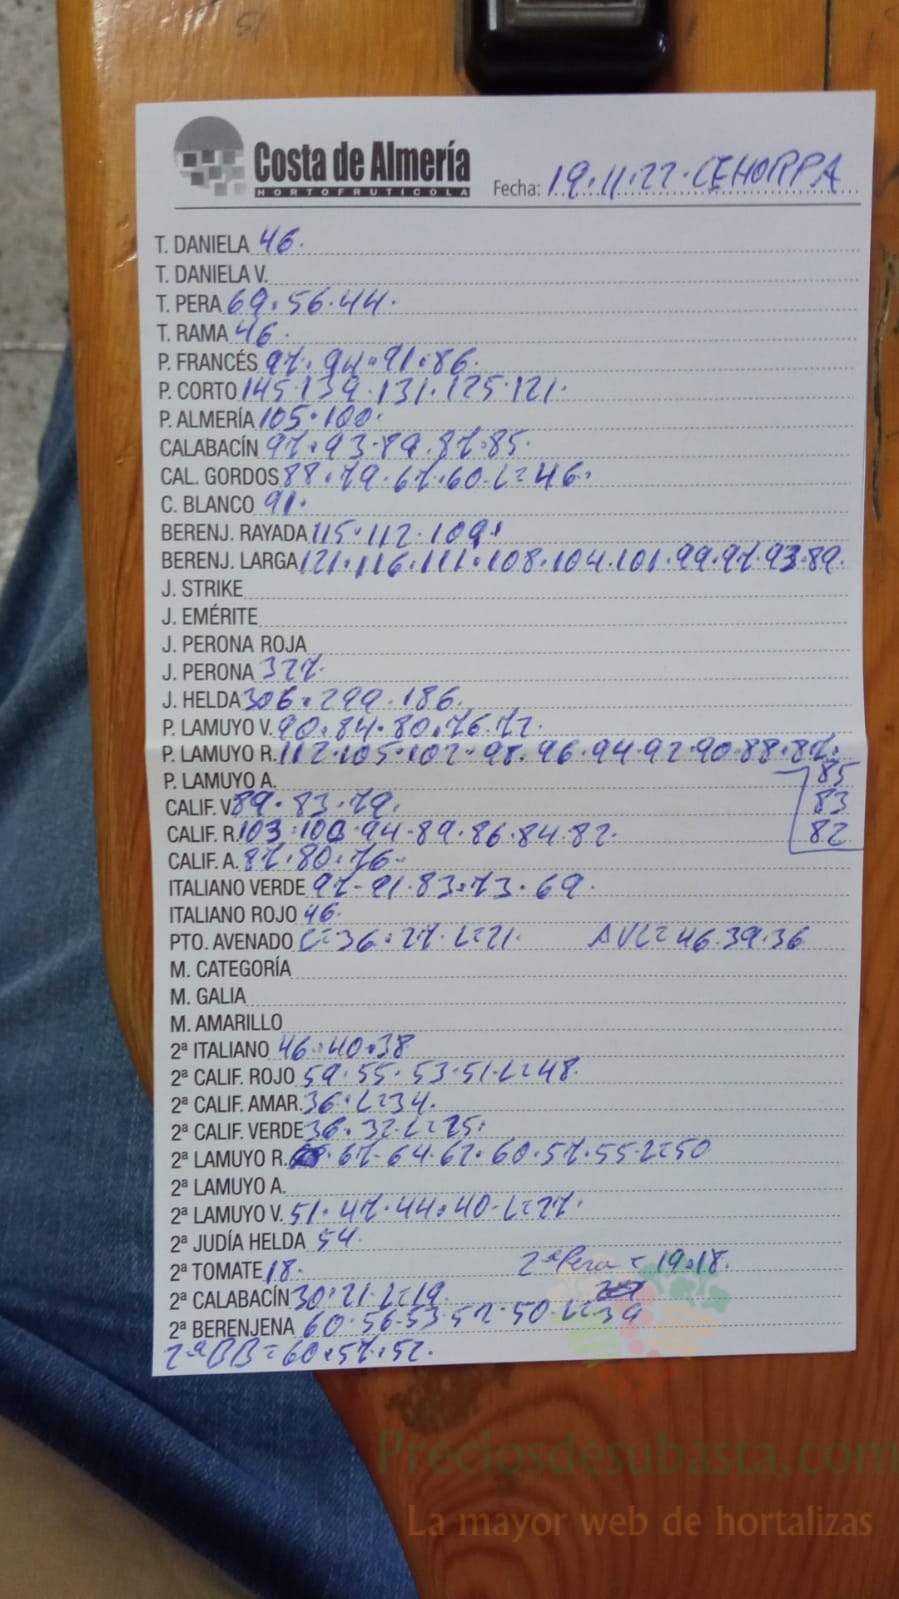 Costa de Almería
HORTOFRUTICOLA
Fecha: 19.11.22. CEHORPA
T. DANIELA 46.
T. DANIELA V.
T. PERA 69.56.44.
T. RAMA 46.
P. FRANCÉS 97.94.91.86.
P. CORTO 145.139.131.125.121.
P. ALMERÍA 105.100.
CALABACÍN 97.93.89.87.85.
CAL. GORDOS 88.79.67.60.L=46.
C. BLANCO 91.
BERENJ. RAYADA 115.112.109.
BERENJ. LARGA 121.116.111.108.104.101.99.97.93.89.
J. STRIKE
J. EMÉRITE
J. PERONA ROJA
J. PERONA 327.
J. HELDA 306.299.186.
P. LAMUYO V. 90.84.80.76.72.
P. LAMUYO R. 112.105.102-98.96.94-92-90-88.87.
P. LAMUYO A. 85
CALIF. V. 89.83.79. 83
CALIF. R. 103.100-94-89.86.84.82. 82
CALIF. A. 87.80.76-
ITALIANO VERDE 97-91.83.73.69.
ITALIANO ROJO 46.
PTO. AVENADO L=36.27.L=21. AVL=46.39.36
M. CATEGORÍA
M. GALIA
M. AMARILLO
2ª ITALIANO 46.40.38
2ª CALIF. ROJO 59.55.53.51.L=48.
2ª CALIF. AMAR. 36.L=34.
2ª CALIF. VERDE 36.32-L=25.
2ª LAMUYO R. 67-64.62.60.57.55-L=50
2ª LAMUYO A.
2ª LAMUYO V. 51.47.44.40-L=27.
2ª JUDÍA HELDA 54
2ª TOMATE 18. 2ª Pera = 19.18.
2ª CALABACÍN 30.21.L=19.
2ª BERENJENA 60.56-53.52.50.L=39
2ª BB=60.57.52.
Preciosdesubasta.com
La mayor web de hortalizas